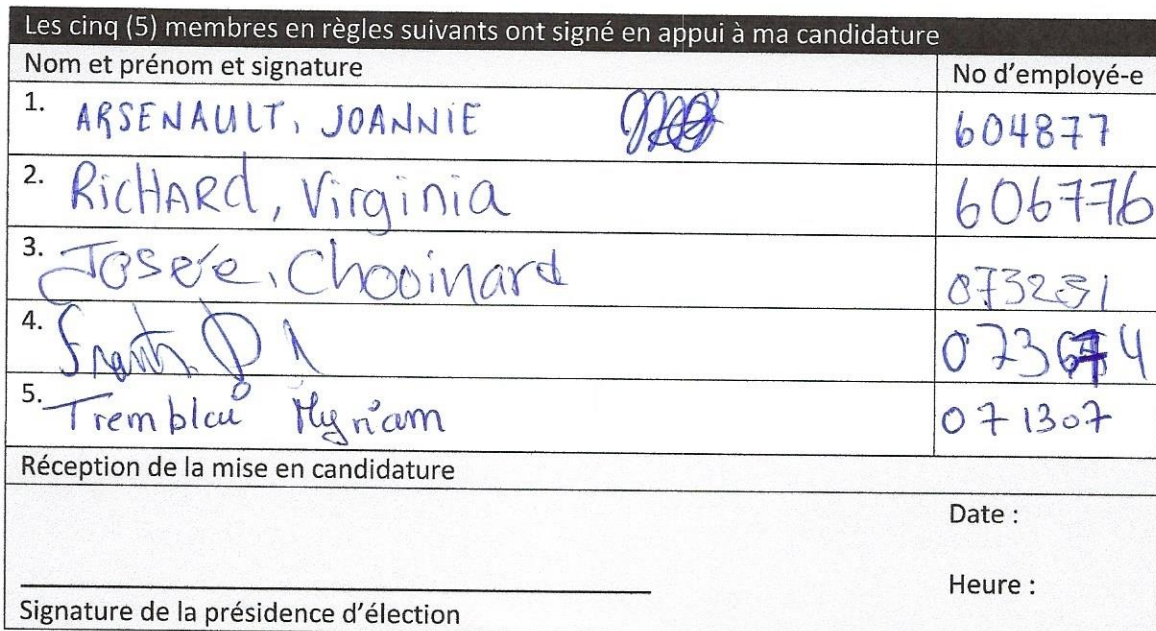 Les cinq (5) membres en règles suivants ont signé en appui à ma candidature
Nom et prénom et signature No d'employé-e
1. ARSENAULT, JOANNIE 604877
2. RicHARd, Virginia 606776
3. Josée, Chooinard 073231
4. 
5. Tremblai Myriam 071307
Réception de la mise en candidature
Date :
Heure :
Signature de la présidence d'élection